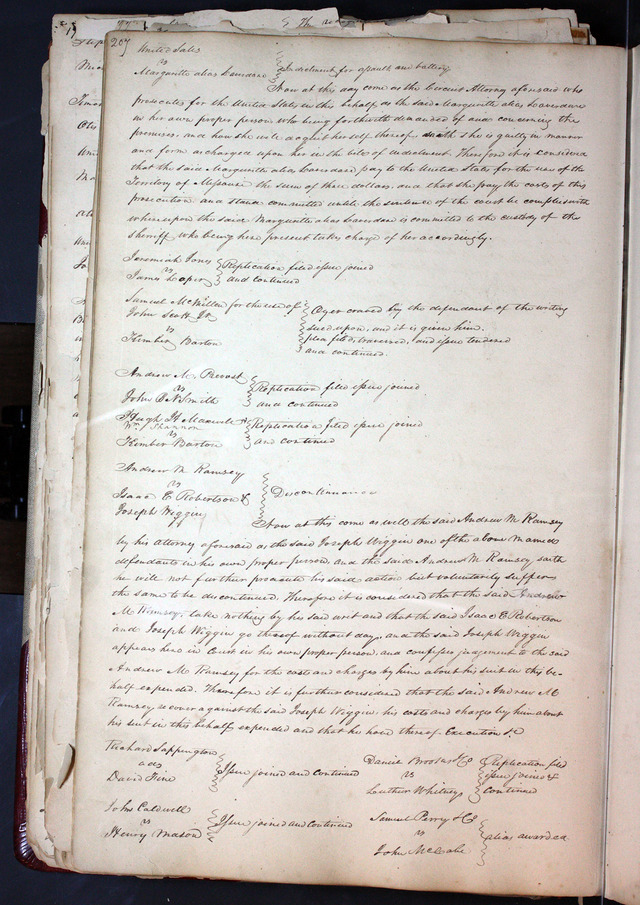 207
United States
vs
Margarette alias Laverdure } Indictment for assault and battery
Now at this day come as the Circuit Attorney aforesaid who
prosecutes for the United States in this behalf, as the said Margurette alias Laverdure
in her own proper person who being forthwith demanded of and concerning the
premises, and how she will acquit herself thereof saith she is guilty in manner
and form as charged upon her in the bill of indictment. Therefore it is considered
that the said Margurette alias Laverdure pay to the United States for the use of the
Territory of Missouri the sum of three dollars, and that she pay the costs of this
prosecution and stand committed until the sentence of the court be complied with
whereupon the said Margurette alias Laverdure is committed to the custody of the
sheriff who being here present takes charge of her accordingly.
Jeremiah Jones
vs
James Looper } Replication filed issue joined
and continued
Samuel McMillen for the use of
John Scott Jr
vs
Kimber Barton } Oyer craved by the defendant of the writing
sued upon, and it is given him,
plea filed, traversed, and issue tendered
and continued.
Andrew M. Provost
vs
John B N Smith } Replication filed issue joined
and continued
Hugh H Maxwell &
Wm Shannon
vs
Kimber Barton } Replication filed issue joined
and continued
Andrew M Ramsey
vs
Isaac E Robertson &
Joseph Wiggin } Discontinuance
Now at this come as well the said Andrew M Ramsey
by his attorney aforesaid as the said Joseph Wiggin one of the above named
defendants in his own proper person, and the said Andrew M Ramsey saith
he will not further prosecute his said action but voluntarily suffers
the same to be discontinued. Therefore it is considered that the said Andrew
M Ramsey, take nothing by his said writ and that the said Isaac E Robertson
and Joseph Wiggin go thereof without day, and the said Joseph Wiggin
appears here in Court in his own proper person, and confesses judgement to the said
Andrew M Ramsey for the costs and charges by him about his suit in this be-
half expended. Therefore it is further considered that the said Andrew M
Ramsey, recover against the said Joseph Wiggin, his costs and charges by him about
his suit in this behalf expended and that he have thereof Execution &c
Richard Sappington
ads
David Fine } Issue joined and continued
Daniel Brooks & Co
vs
Luther Whitney } Replication filed
issue joined &
continued
John Caldwell
vs
Henry Mason } Issue joined and continued
Samuel Perry & Co
vs
John McCabe } alias awarded